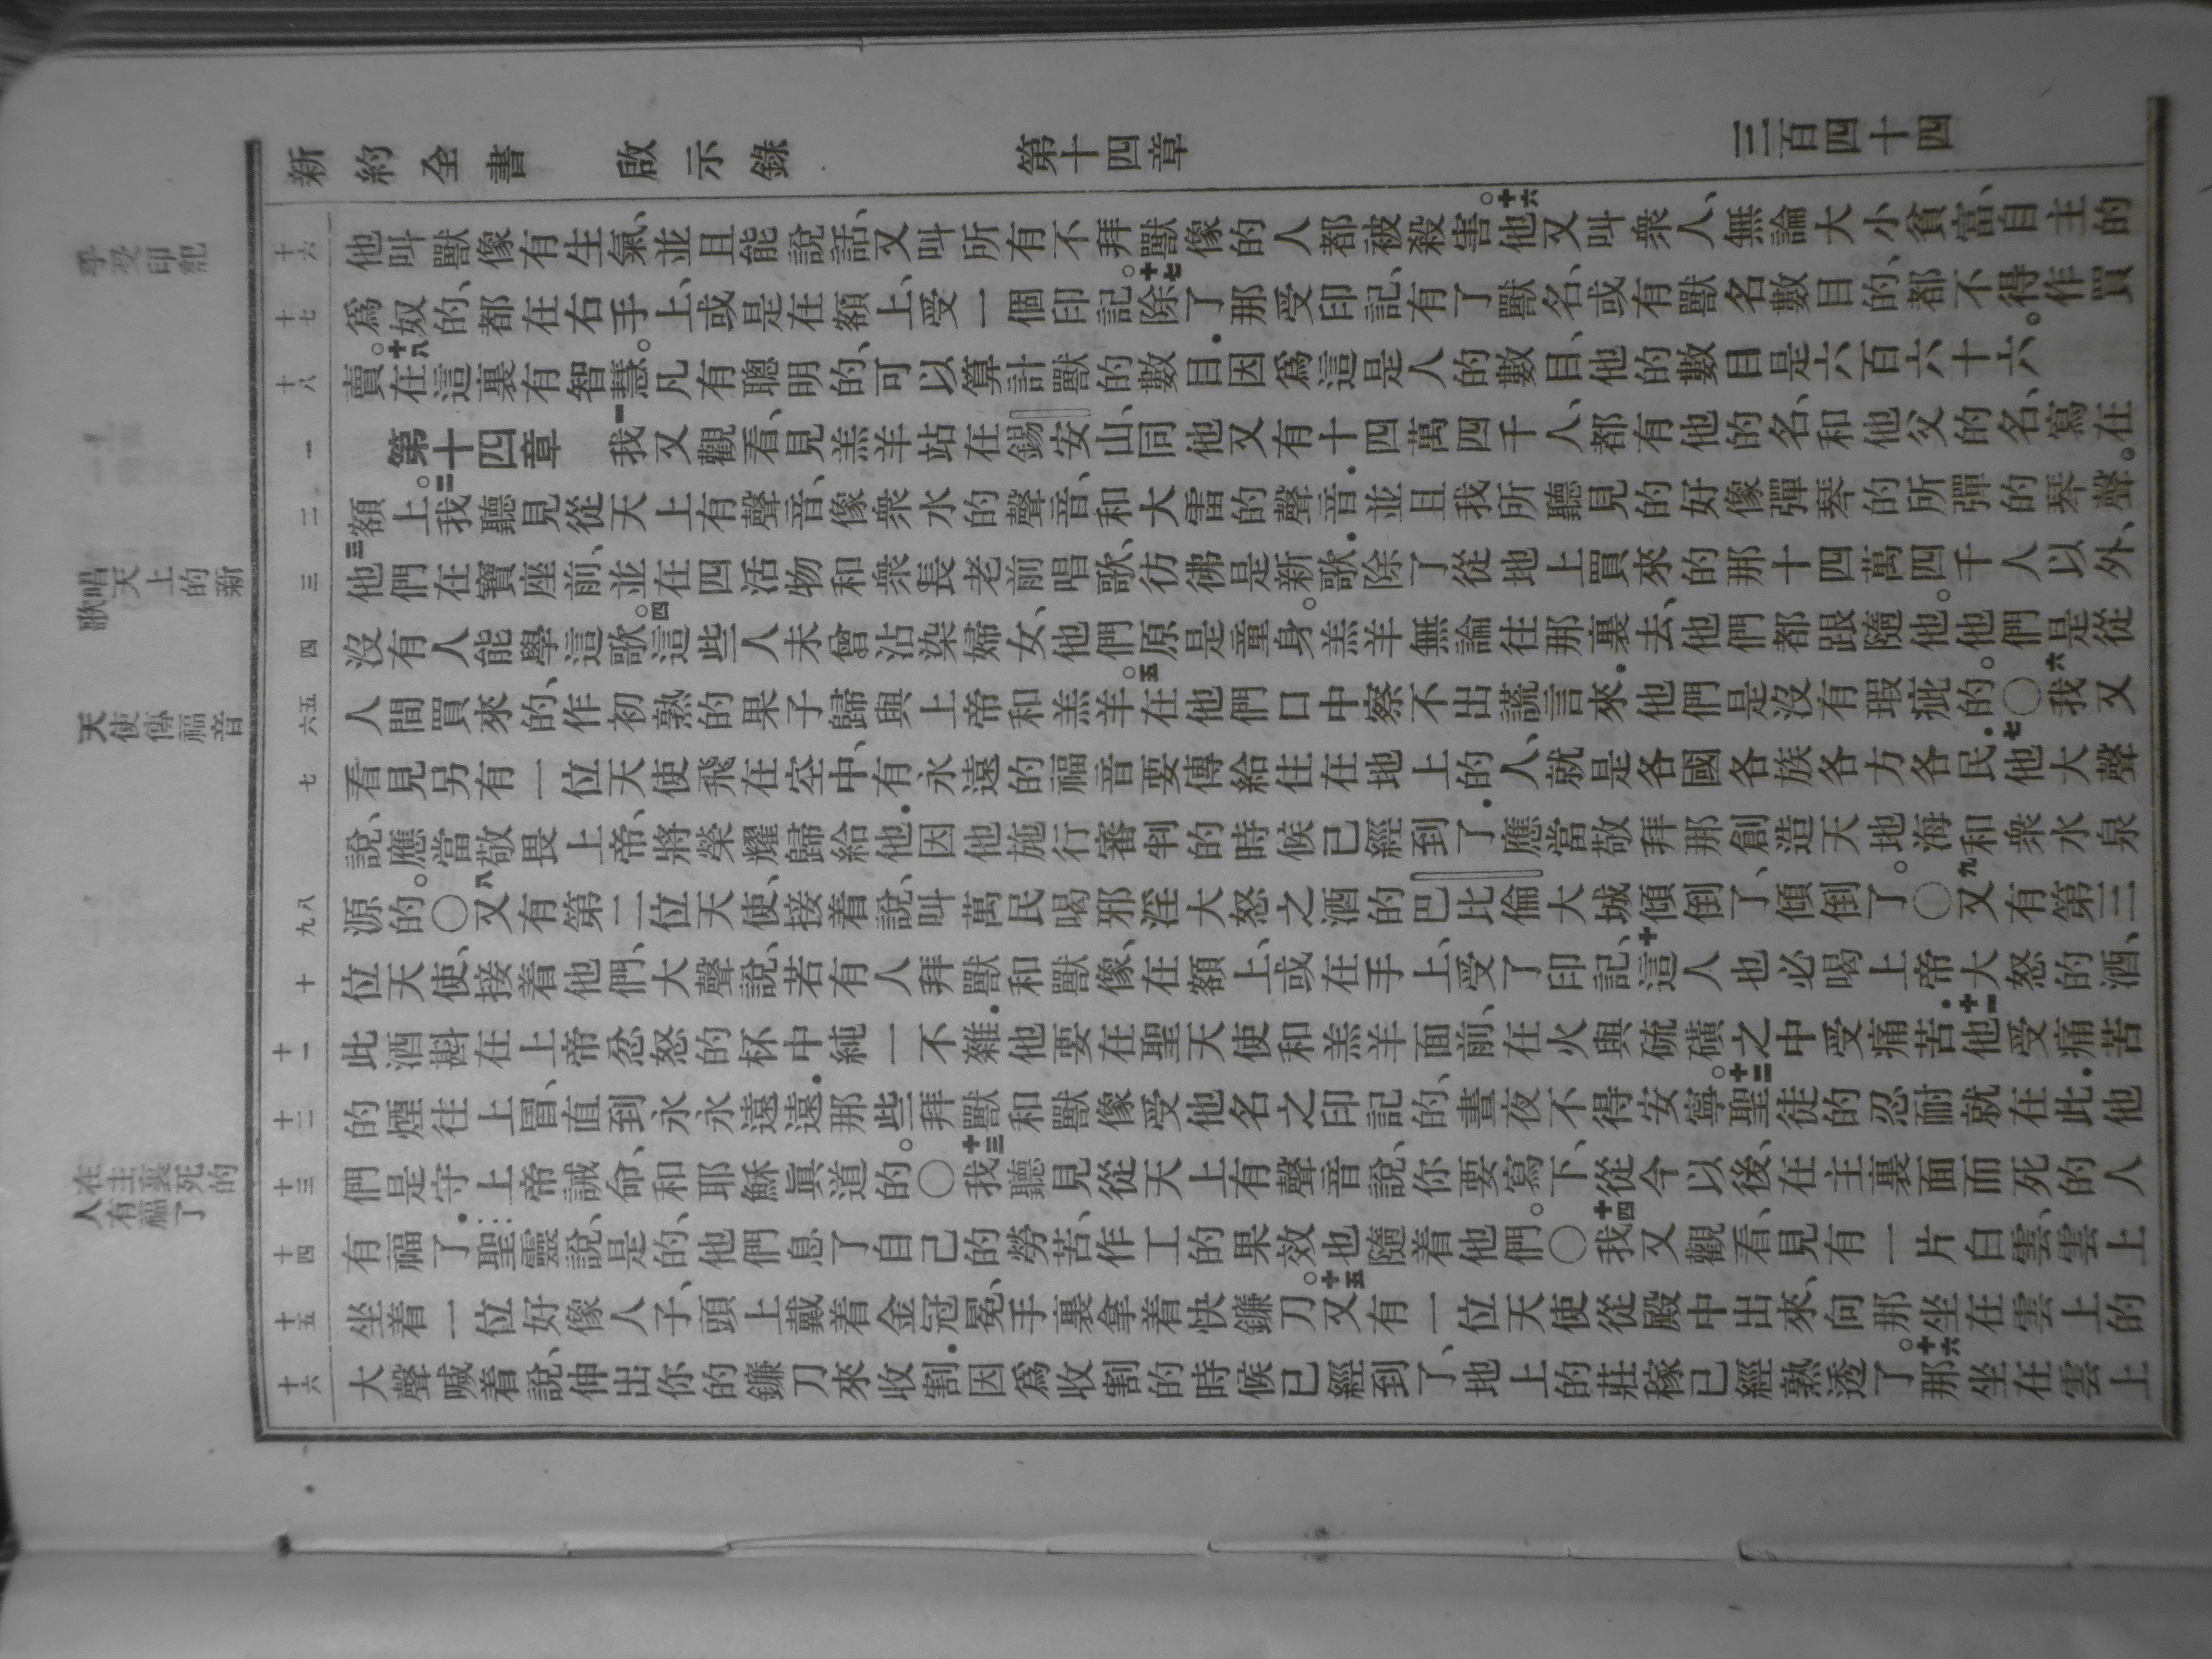 新約全書 啟示錄 第十四章 三百四十四
手受印記
十六
他叫獸像有生氣、並且能說話、又叫所有不拜獸像的人都被殺害。十六他又叫衆人、無論大小貧富、自主的
十七
爲奴的、都在右手上、或是在額上、受一個印記。十七除了那受印記、有了獸名、或有獸名數目的、都不得作買
十八
賣。十八在這裏有智慧。凡有聰明的、可以算計獸的數目.因爲這是人的數目、他的數目是六百六十六。
一
第十四章 一我又觀看、見羔羊站在錫安山、同他又有十四萬四千人、都有他的名、和他父的名、寫在
二
額上。二我聽見從天上有聲音、像衆水的聲音、和大雷的聲音.並且我所聽見的好像彈琴的所彈的琴聲。
歌唱天上的新
三
三他們在寶座前、並在四活物和衆長老前唱歌、彷彿是新歌.除了從地上買來的那十四萬四千人以外、
四
沒有人能學這歌。四這些人未曾沾染婦女、他們原是童身。羔羊無論往那裏去、他們都跟隨他。他們是從
天使傳福音
六五
人間買來的、作初熟的果子歸與上帝和羔羊。五在他們口中察不出謊言來.他們是沒有瑕疵的。○六我又
七
看見另有一位天使飛在空中、有永遠的福音要傳給住在地上的人、就是各國各族各方各民.七他大聲
說、應當敬畏上帝、將榮耀歸給他.因他施行審判的時候已經到了.應當敬拜那創造天地海和衆水泉
九八
源的。○八又有第二位天使、接着說、叫萬民喝邪淫大怒之酒的巴比倫大城傾倒了、傾倒了。○九又有第三
十
位天使、接着他們、大聲說、若有人拜獸和獸像、在額上、或在手上、受了印記、十這人也必喝上帝大怒的酒、
十一
此酒斟在上帝忿怒的杯中純一不雜.他要在聖天使和羔羊面前、在火與硫磺之中受痛苦.十一他受痛苦
十二
的煙往上冒、直到永永遠遠.那些拜獸和獸像受他名之印記的、晝夜不得安寧。十二聖徒的忍耐就在此.他
人在主裏死的有福了
十三
們是守上帝誡命、和耶穌眞道的。○十三我聽見從天上有聲音說、你要寫下、從今以後、在主裏面而死的人
十四
有福了.聖靈說、是的、他們息了自己的勞苦、作工的果效也隨着他們。○十四我又觀看、見有一片白雲、雲上
十五
坐着一位好像人子、頭上戴着金冠冕、手裏拿着快鐮刀。十五又有一位天使從殿中出來、向那坐在雲上的
十六
大聲喊着說、伸出你的鐮刀來收割.因爲收割的時候已經到了、地上的莊稼已經熟透了。十六那坐在雲上